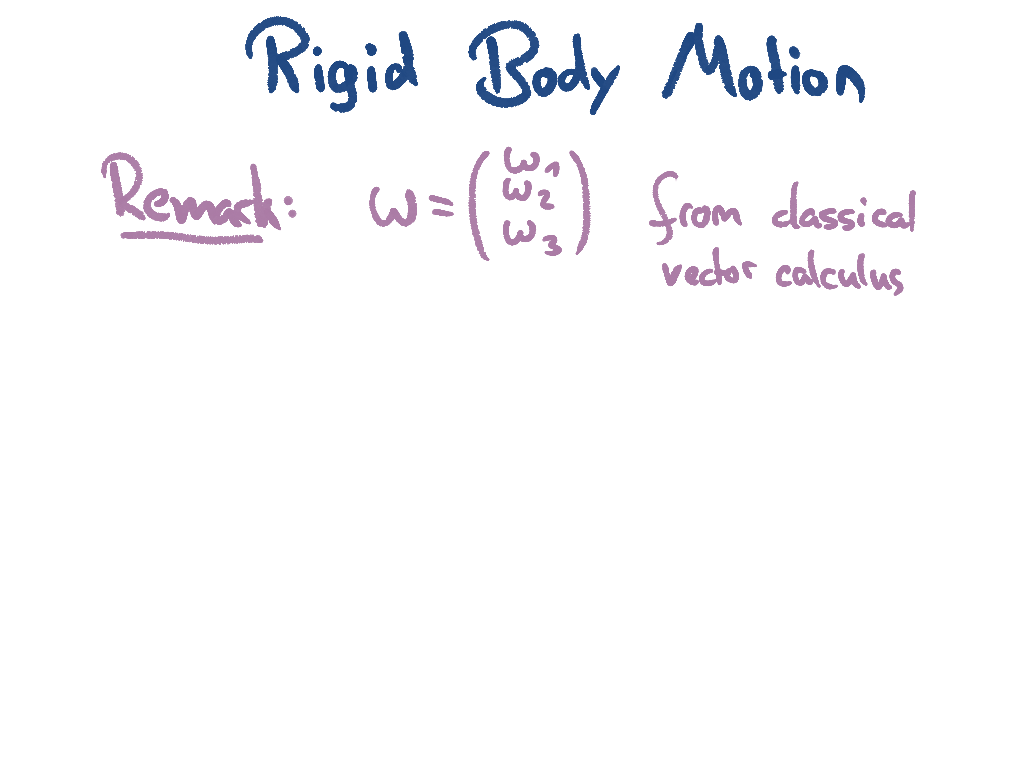 Rigid Body Motion
Remark: ω = (ω₁ ω₂ ω₃) from classical
vector calculus